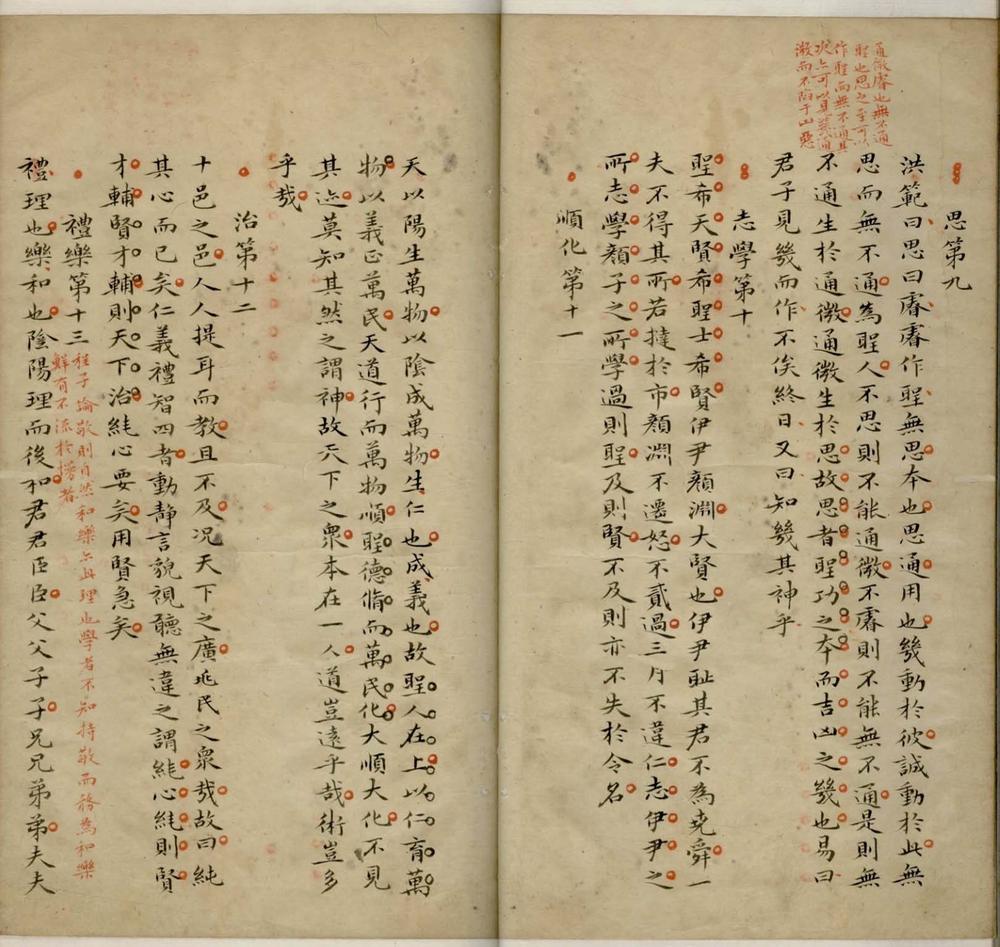 通微睿也無不通
聖也思之至可以
作聖而無不通其
次亦可以見幾通
微而不陷于凶咎
思第九
洪範曰思曰睿睿作聖無思本也思通用也幾動於彼誠動於此無
思而無不通為聖人不思則不能通微不睿則不能無不通是則無
不通生於通微通微生於思故思者聖功之本而吉凶之幾也易曰
君子見幾而作不俟終日又曰知幾其神乎
志學第十
聖希天賢希聖士希賢伊尹顏淵大賢也伊尹耻其君不為堯舜一
夫不得其所若撻於市顏淵不遷怒不貳過三月不違仁志伊尹之
所志學顏子之所學過則聖及則賢不及則亦不失於令名
順化第十一
天以陽生萬物以陰成萬物生仁也成義也故聖人在上以仁育萬
物以義正萬民天道行而萬物順聖德脩而萬民化大順大化不見
其迹莫知其然之謂神故天下之衆本在一人道豈遠乎哉術豈多
乎哉
治第十二
十邑之邑人人提耳而教且不及况天下之廣兆民之衆哉故曰純
其心而已矣仁義禮智四者動靜言貌視聽無違之謂純心純則賢
才輔賢才輔則天下治純心要矣用賢急矣
禮樂第十三
程子論敬則自然和樂亦此理也學者不知持敬而務為和樂
鮮有不流於慢者
禮理也樂和也陰陽理而後和君君臣臣父父子子兄兄弟弟夫夫